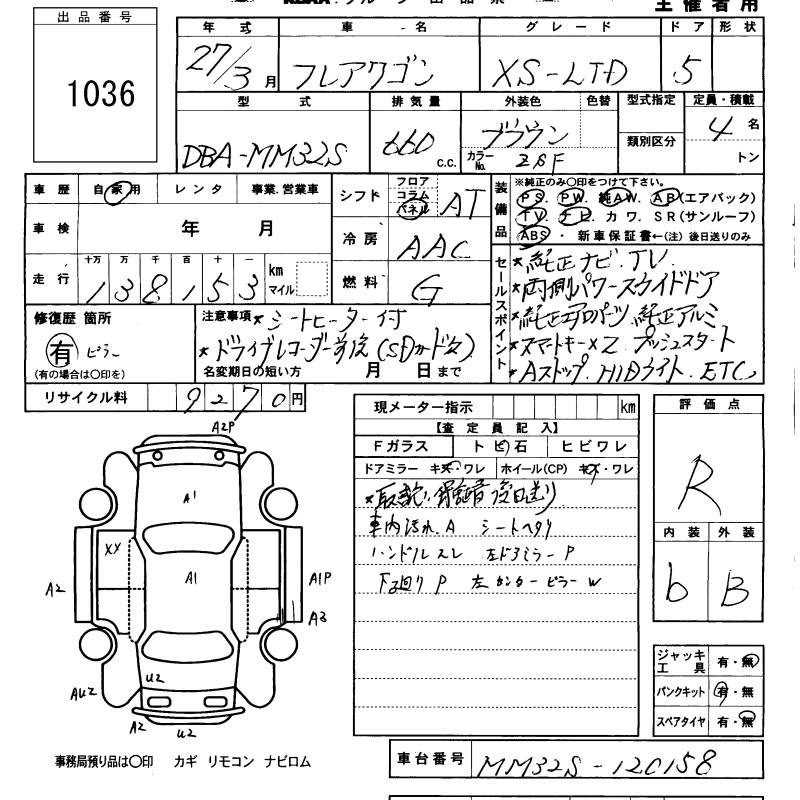 主催者用
出品番号
1036
年式 車名 グレード ドア 形状
27/3月 フレアワゴン XS-LTD 5
型式 排気量 外装色 色替 型式指定 定員・積載
DBA-MM32S 660 c.c. ブラウン 類別区分 4名
カラーNo. ZSF トン
車歴 自家用 レンタ 事業.営業車
車検 年 月
走行 十万 万 千 百 十 一 km マイル
138153
シフト フロア コラム パネル AT
冷房 AAC
燃料 G
装備品 ※純正のみ〇印をつけて下さい。
PS. PW. 純AW. AB(エアバック)
TV. ナビ. カワ. SR(サンルーフ)
ABS ・ 新車保証書←(注)後日送りのみ
セールスポイント
★純正ナビ.TV.
★両側パワースライドドア
★純正エアロパーツ.純正アルミ
★スマートキー×2 プッシュスタート
★Aストップ.HIDライト.ETC
修復歴 箇所
有 ピラー
(有の場合は〇印を)
注意事項 ★シートヒーター付
★ドライブレコーダー前後(SDカード欠)
名変期日の短い方 月 日まで
リサイクル料 9270円
現メーター指示 km
【査定員記入】
Fガラス トビ石 ヒビワレ
ドアミラー キズ・ワレ ホイール(CP) キズ・ワレ
★取説.保証書 後日送り
車内汚れ.A シートヘタリ
ハンドルスレ 左ドアミラーP
下廻りP 左センターピラーW
評価点
R
内装 外装
b B
ジャッキ工具 有・無
パンクキット 有・無
スペアタイヤ 有・無
A2P
A1
XX
A1
A2
A1P
A3
AU2
U2
A2
U2
事務局預り品は〇印 カギ リモコン ナビロム
車台番号 MM32S-120158